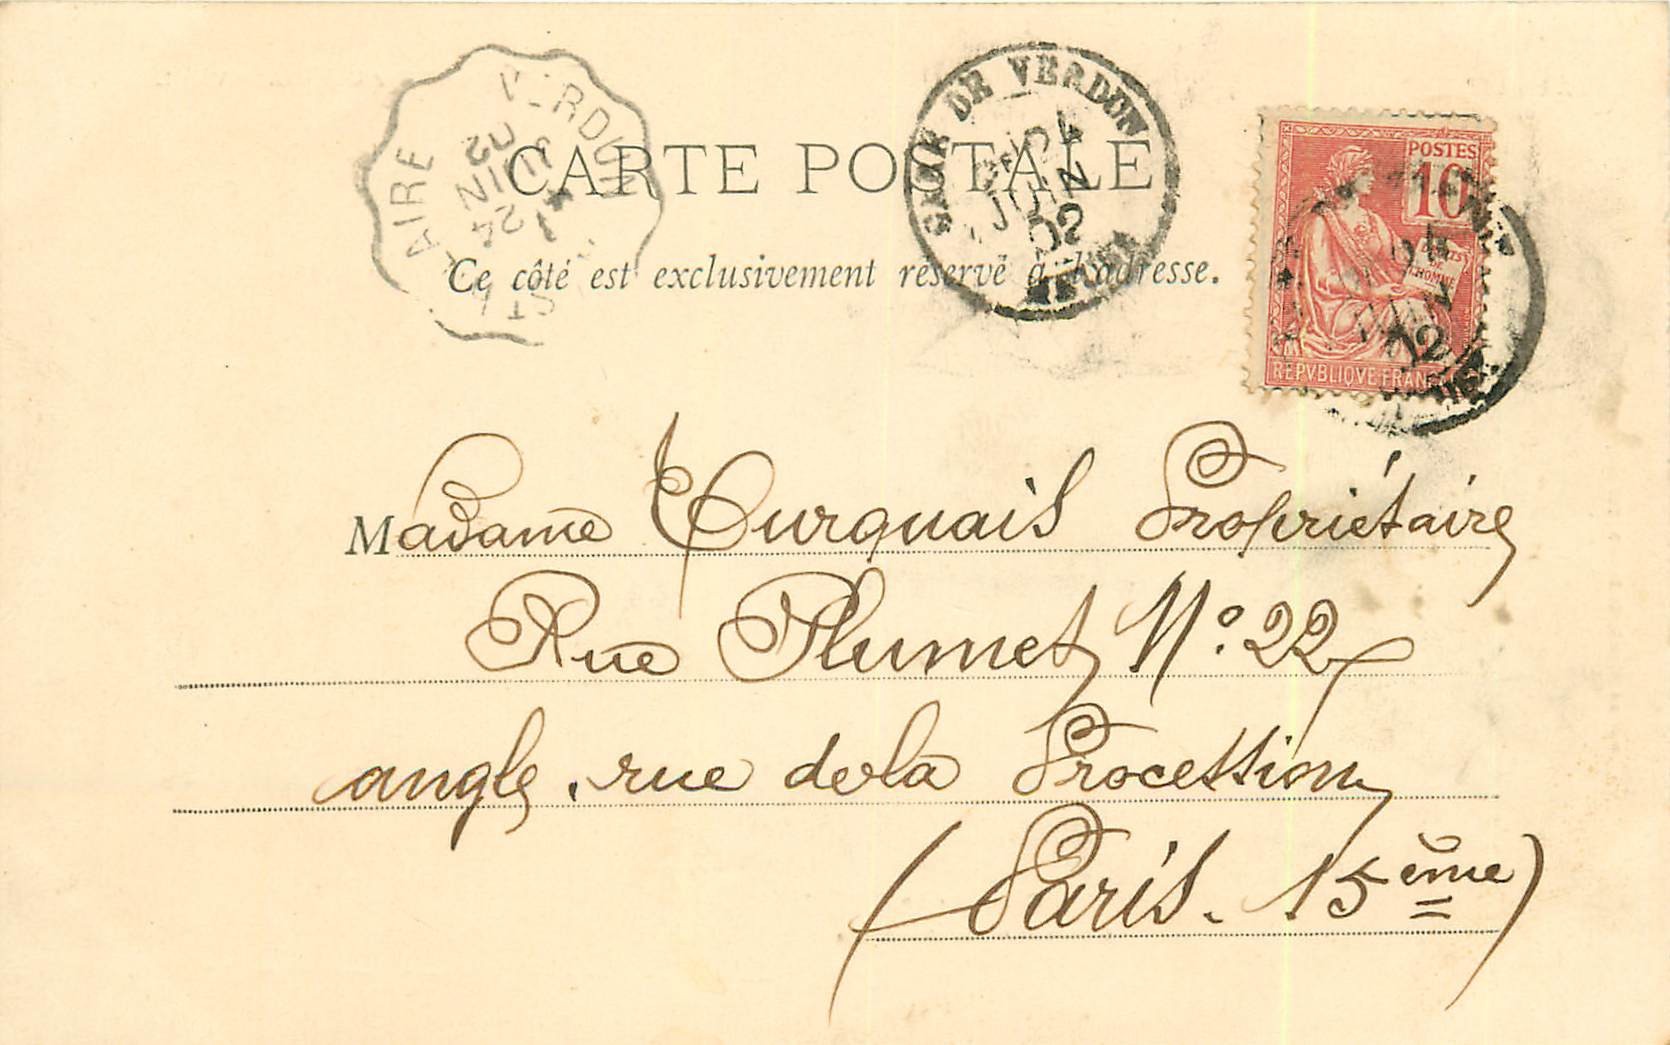 CARTE POSTALE
Ce côté est exclusivement réservé à l'adresse.
VERDUN
ST
AIRE
24
JUIN
02
DE VERDON
JUIN
02
POSTES
10
REPVBLIQVE FRANÇAISE
Madame Turquais Propriétaire
Rue Plumet N° 22
angle, rue de la Procession
(Paris. 15ème)